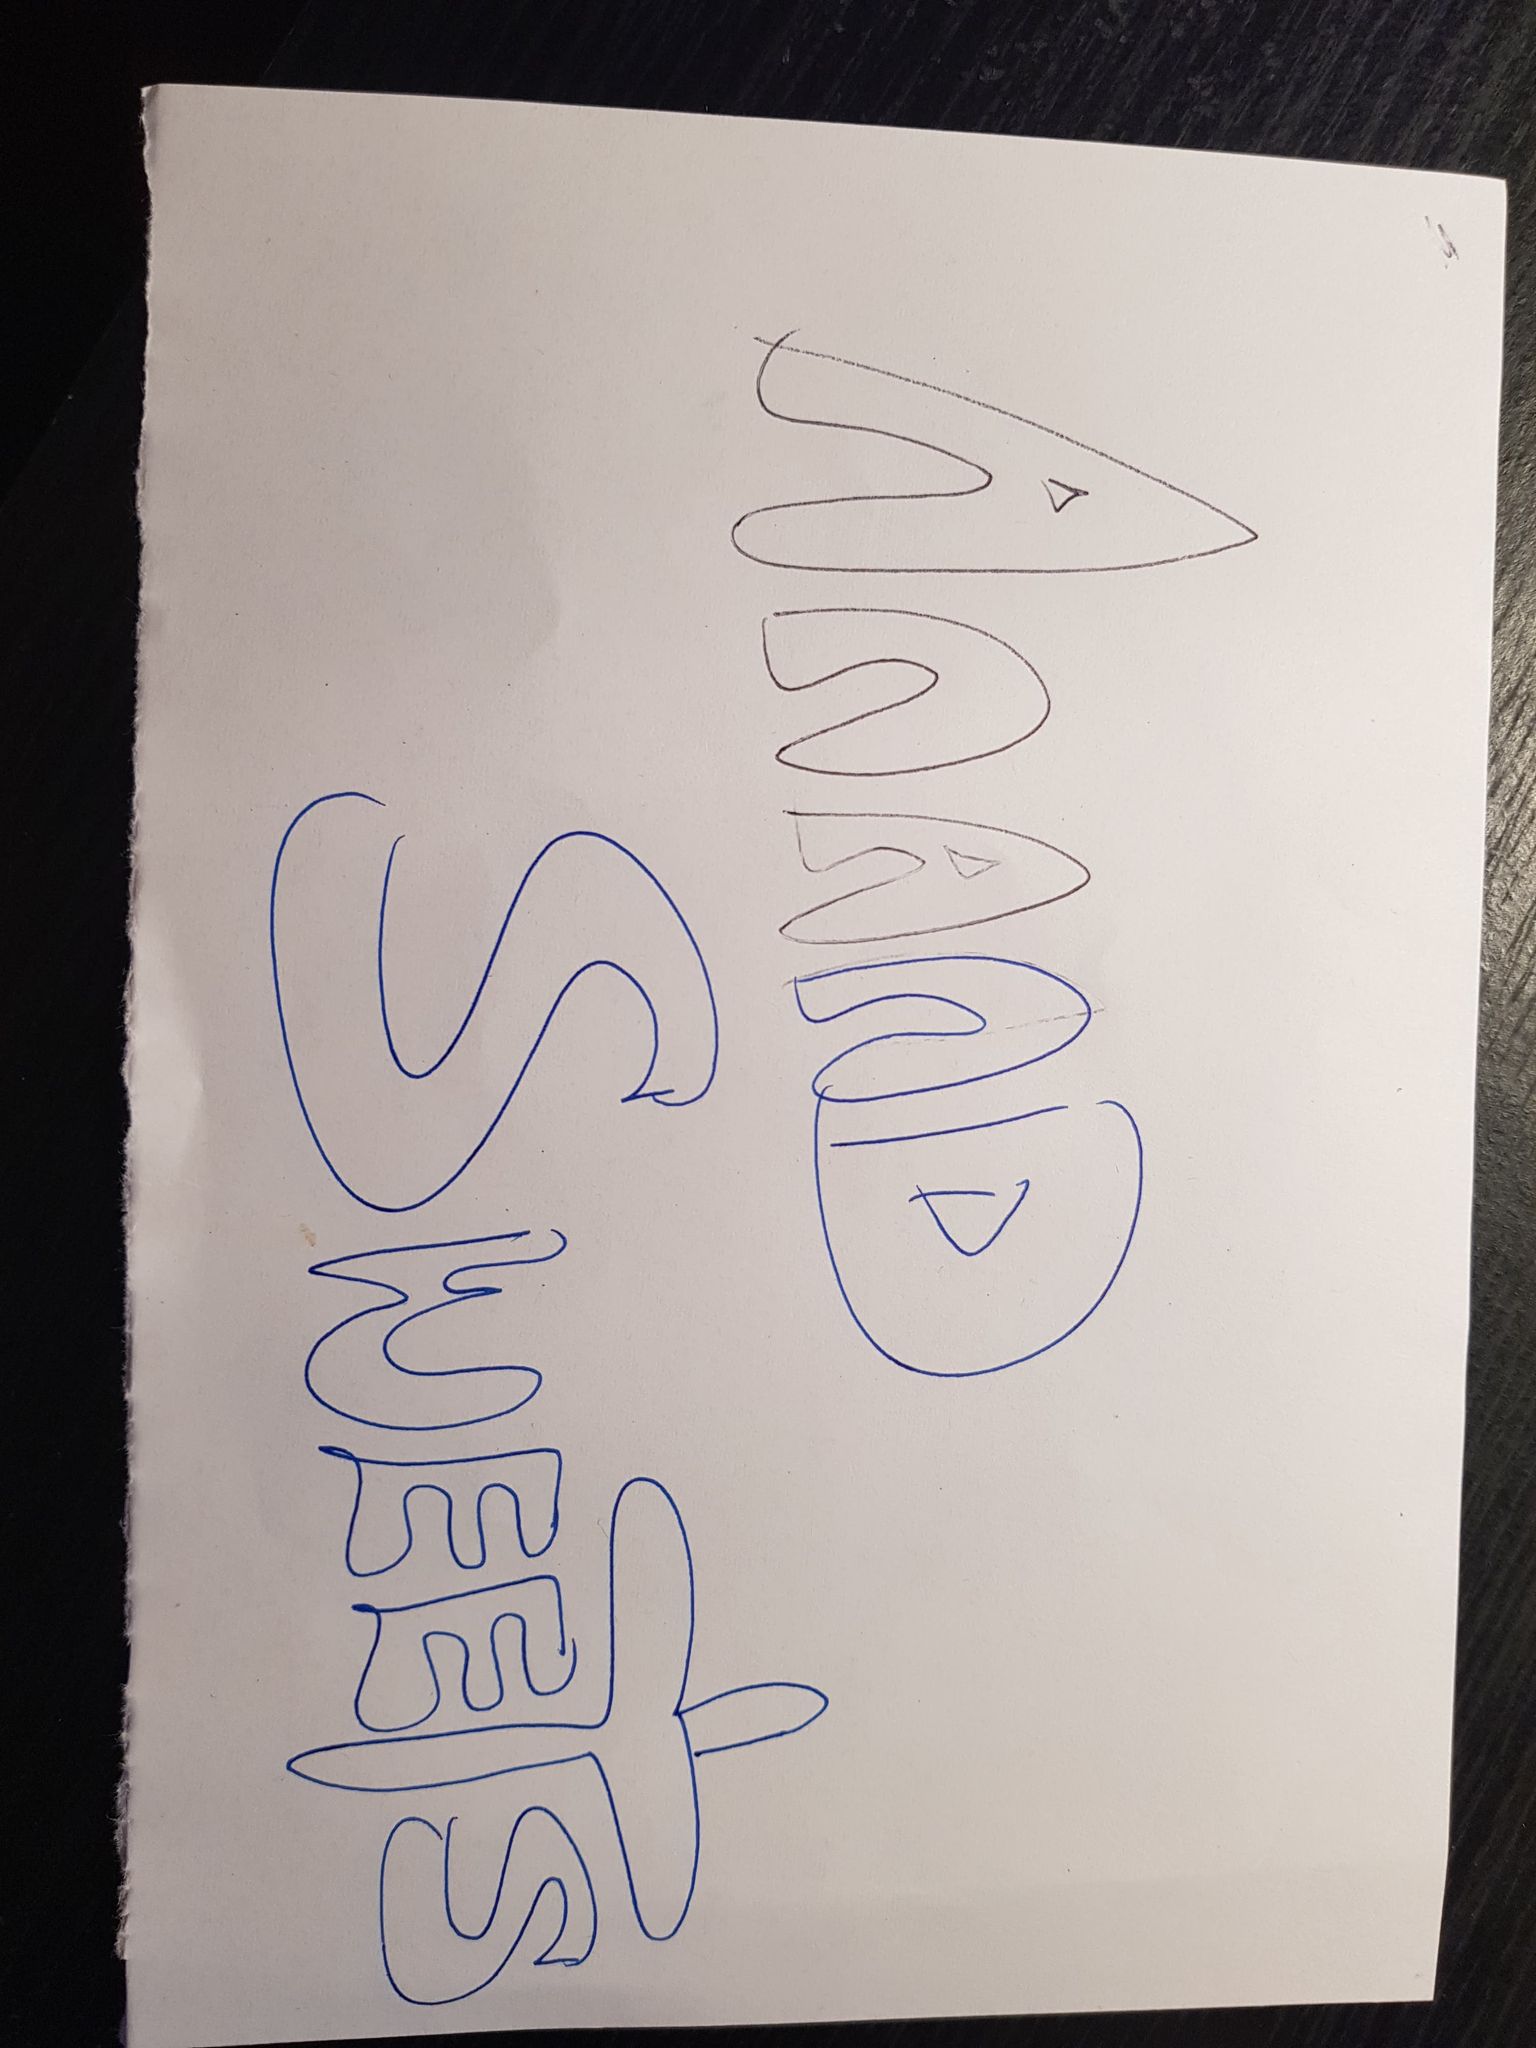 AnAnD
SWEEtS